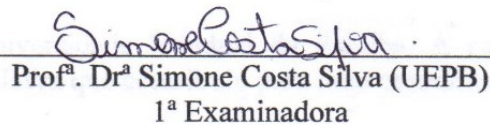 Simone Costa Silva.
Profª. Drª Simone Costa Silva (UEPB)
1ª Examinadora